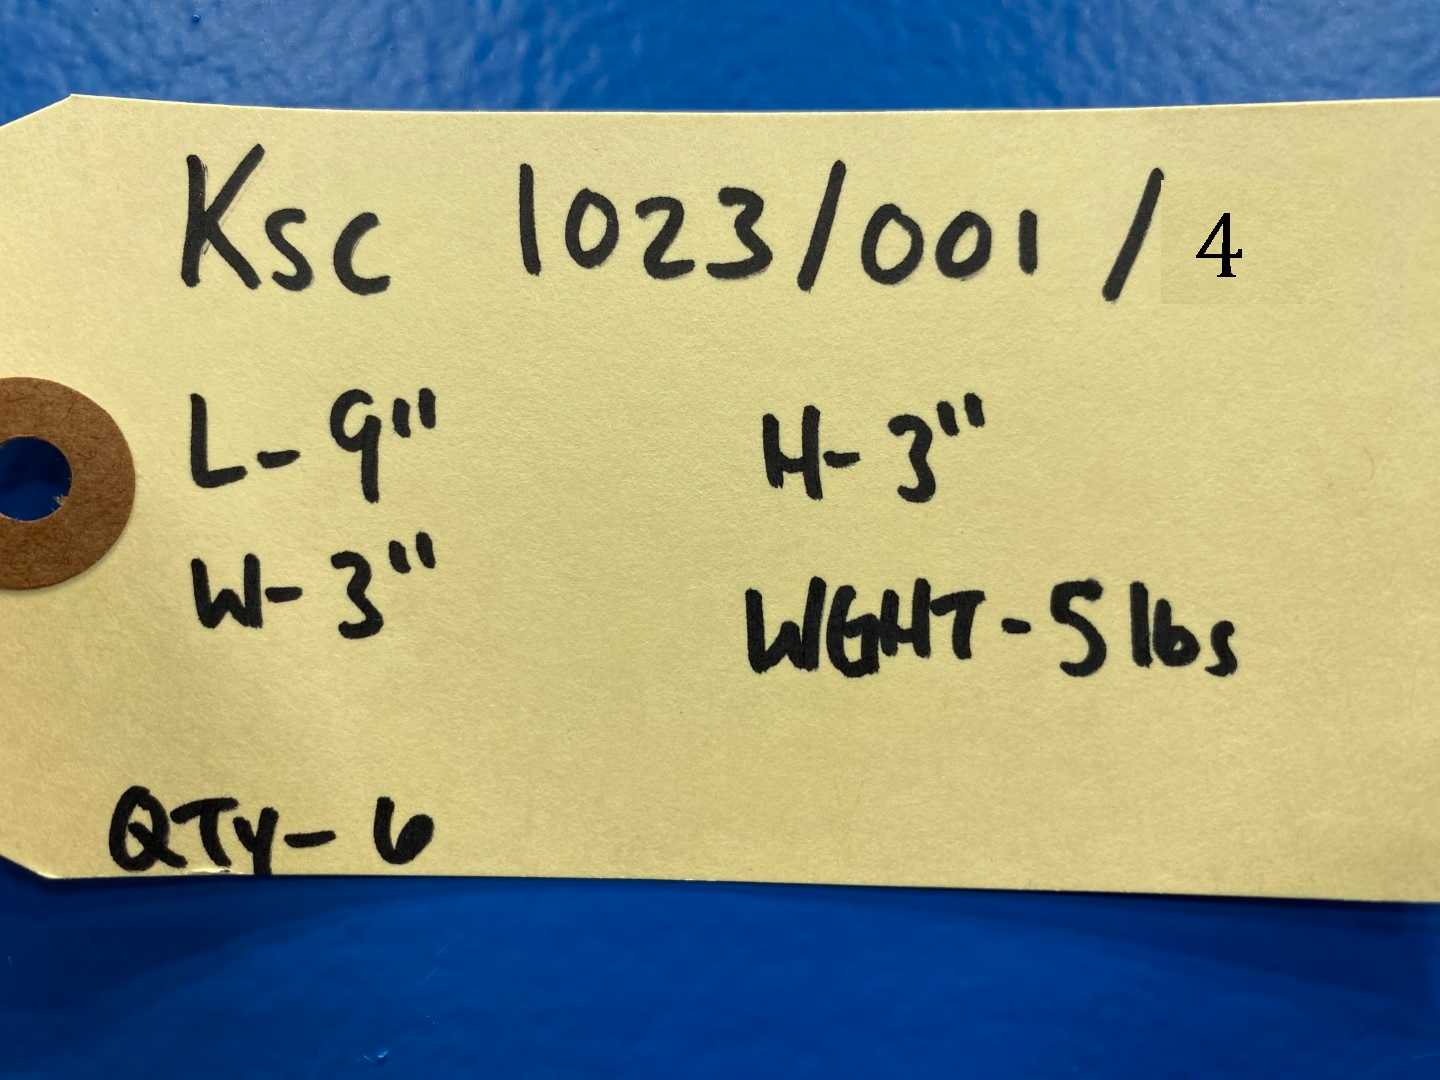 Ksc 1023/001 / 4
L- 9" H- 3"
W- 3" WGHT - 5 lbs
QTy- 6